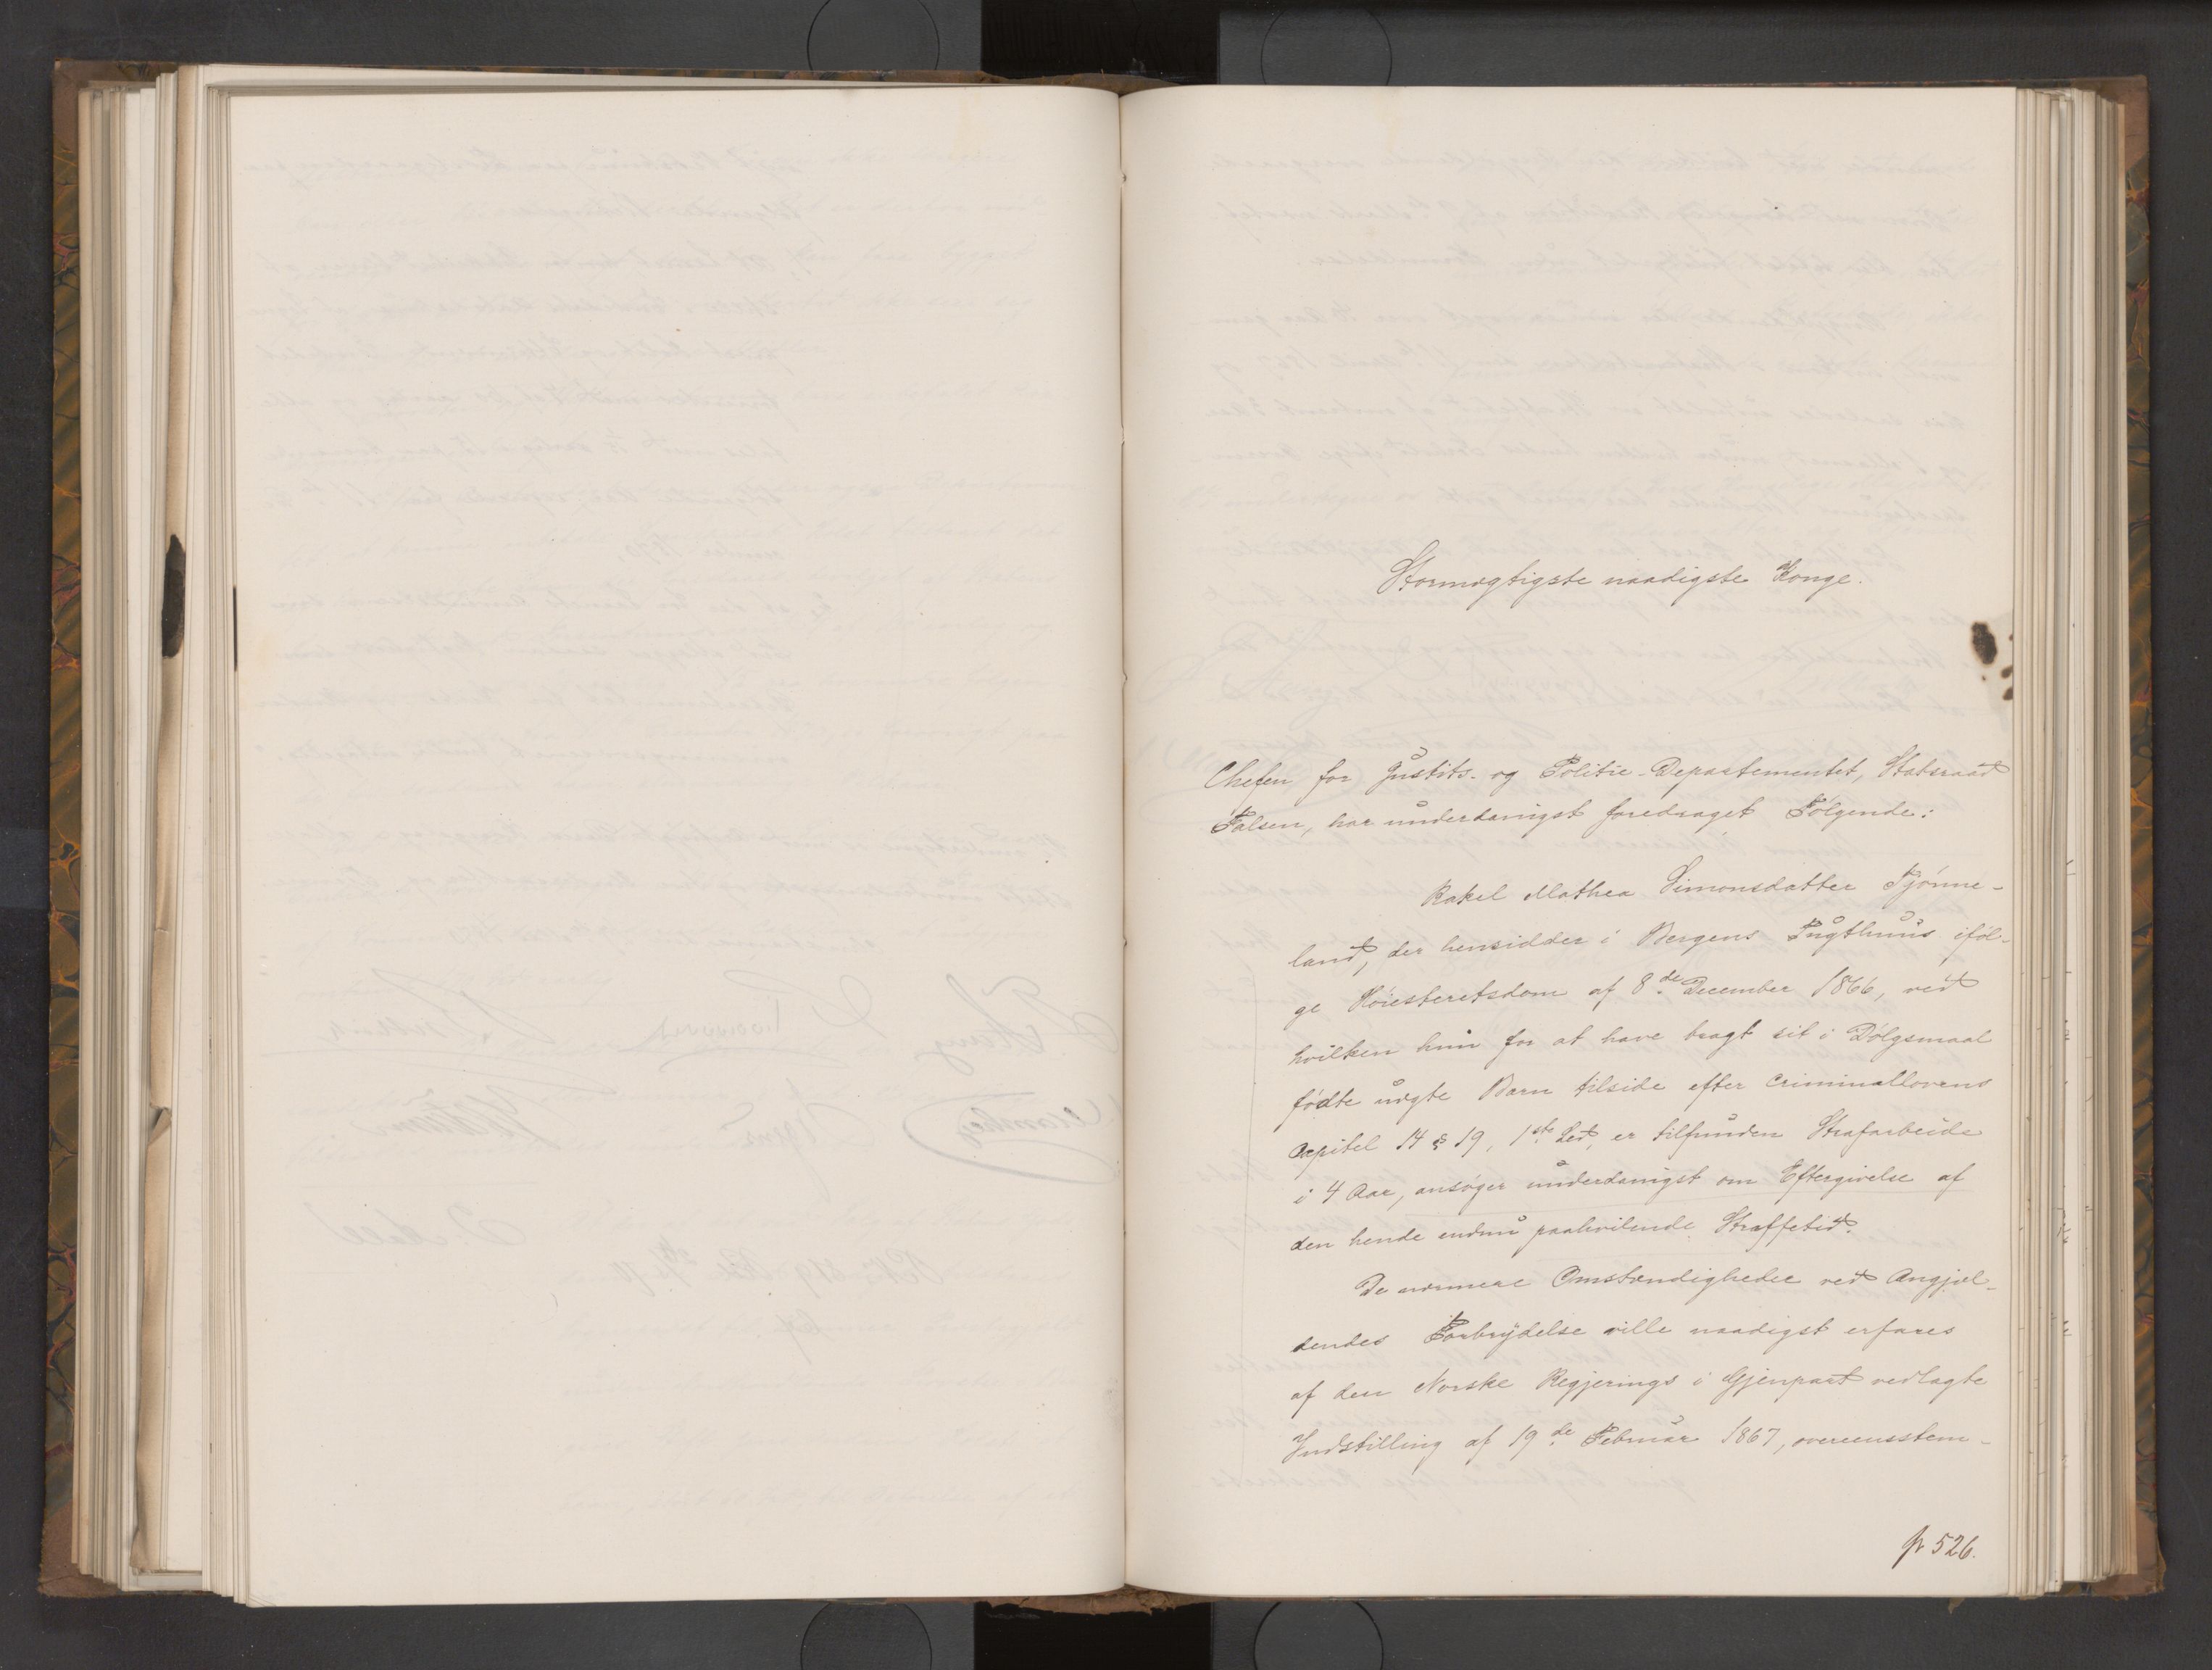 Stormægtigste naadigste Konge.
Chefen for Justits- og Politie-Departementet, Statsraad
Falsen, har underdanigst foredraget Følgende:
Rakel Mathea Simonsdatter Tjønne-
land, der hensidder i Bergens Tugthuus iføl-
ge Høiesteretsdom af 8de December 1866, ved
hvilken hun for at have bragt sit i Dølgsmaal
fødte uægte Barn tilside efter Criminallovens
Capitel 14 § 19, 1ste Led, er tilfunden Strafarbeide
i 4 Aar, ansøger underdanigst om Eftergivelse af
den hende endnu paahvilende Straffetid.
De nærmere Omstændigheder ved Angjæl-
dendes Forbrydelse ville naadigst erfares
af den Norske Regjerings i Gjenpart vedlagte
Indstilling af 19de Februar 1867, overeensstem-
p 526.